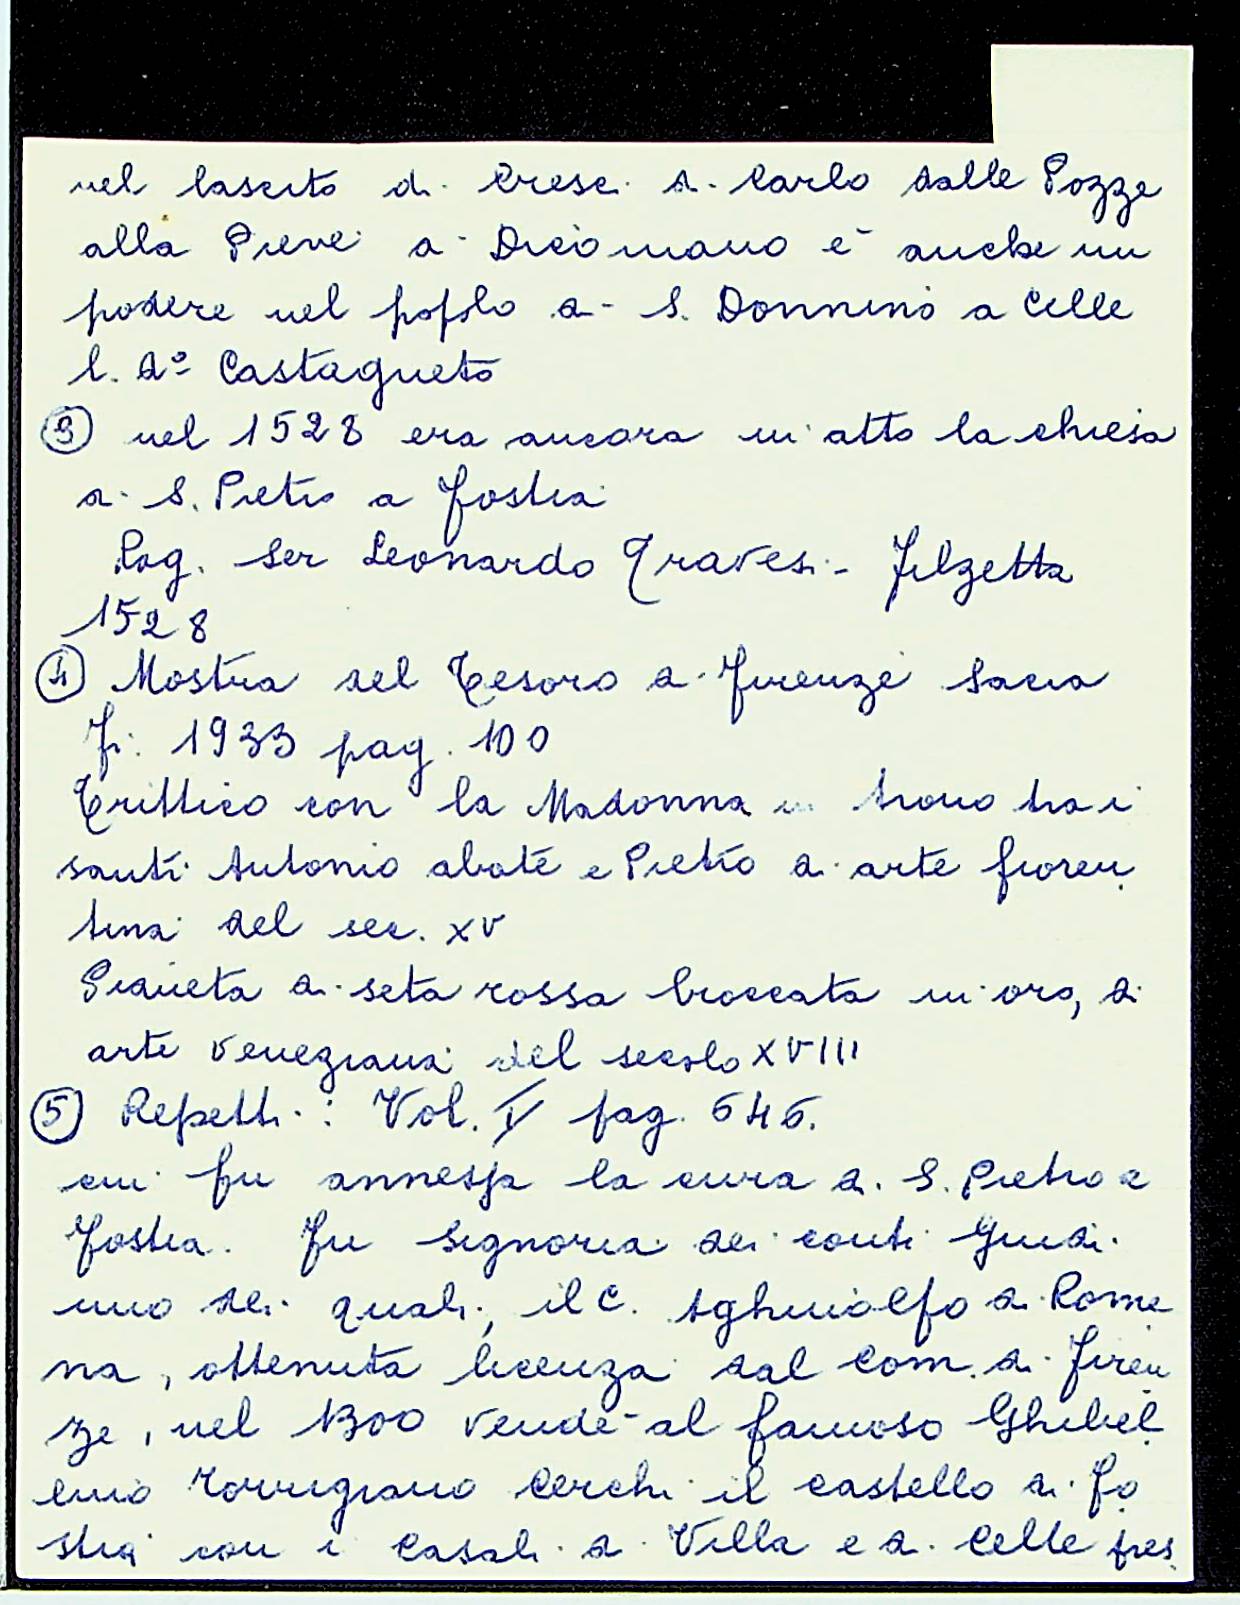 nel lascito di Cresc. di Carlo dalle Pozze
alla Pieve di Dicomano è anche un
podere nel popolo di S. Donnino a Celle
l. d° Castagneto
③ nel 1528 era ancora in atto la chiesa
di S. Pietro a Fostia
Rog. Ser Leonardo Travesi - Filzetta
1528
④ Mostra del Tesoro di Firenze Sacra
Fi. 1933 pag. 100
Trittico con la Madonna in trono tra i
santi Antonio abate e Pietro di arte fioren
tina del sec. XV
Pianeta di seta rossa broccata in oro, di
arte veneziana del secolo XVIII
⑤ Repetti: Vol. V pag. 646.
cui fu annessa la cura di S. Pietro a
Fostia. Fu signoria dei conti Guidi
uno dei quali, il C. Aghinolfo di Rome
na, ottenuta licenza dal Com. di Firen
ze, nel 1300 vendè al famoso Ghibel
lino Torrigiano Cerchi il castello di Fo
stia con i casali di Villa e di Celle pres